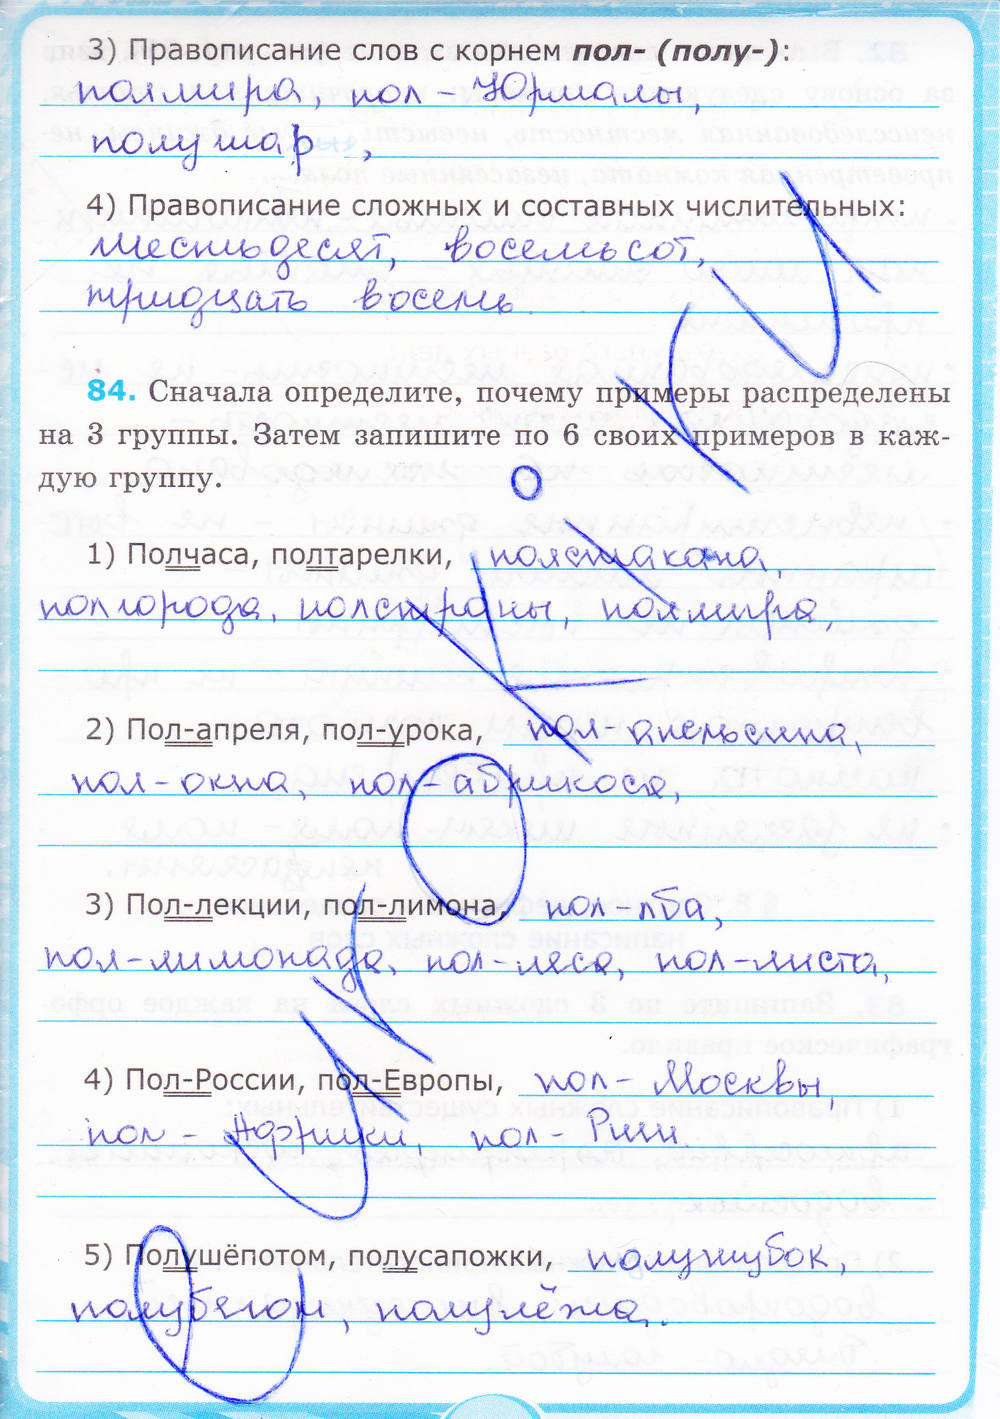 3) Правописание слов с корнем пол- (полу-):
полмира, пол-Юрмалы,
полушар,
4) Правописание сложных и составных числительных:
шестьдесят, восемьсот,
тридцать восемь.
84. Сначала определите, почему примеры распределены
на 3 группы. Затем запишите по 6 своих примеров в каж-
дую группу.
1) Полчаса, полтарелки, полстакана,
полгорода, полстраны, полмира,
2) Пол-апреля, пол-урока, пол-апельсина,
пол-окна, пол-абрикоса,
3) Пол-лекции, пол-лимона, пол-лба,
пол-лимонада, пол-леса, пол-листа,
4) Пол-России, пол-Европы, пол-Москвы,
пол-Африки, пол-Риги.
5) Полушёпотом, полусапожки, полушубок,
полубегом, полулёжа.